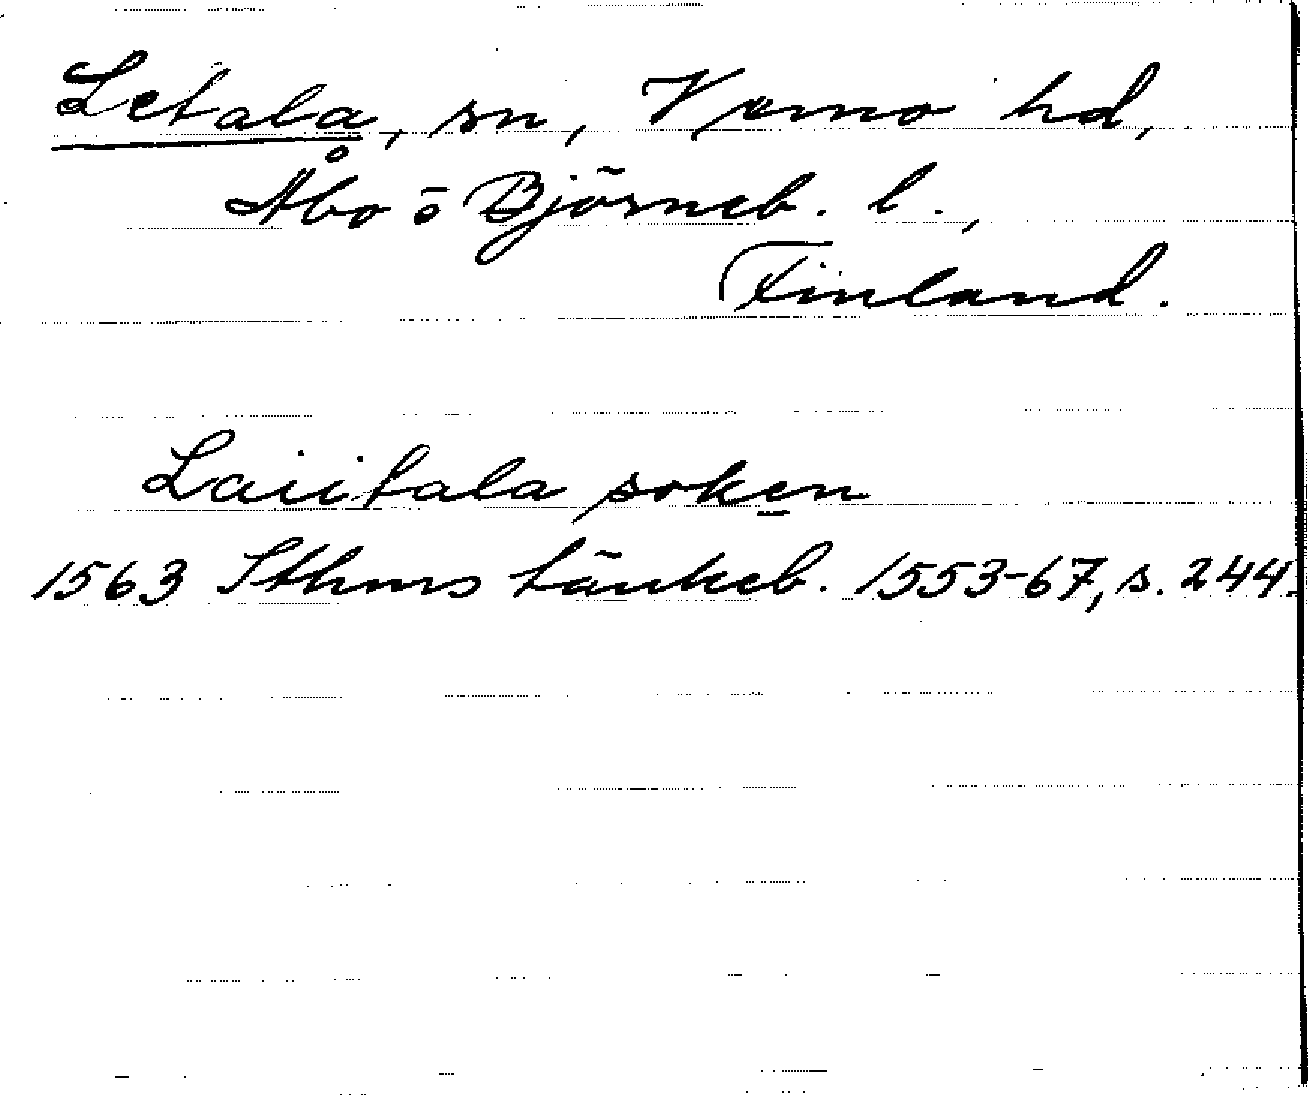 Letala, sn, Vemo hd,
Åbo o Björneb. l.,
Finland.
Laiitala soken
1563 Sthms tänkeb. 1553-67, s. 244.